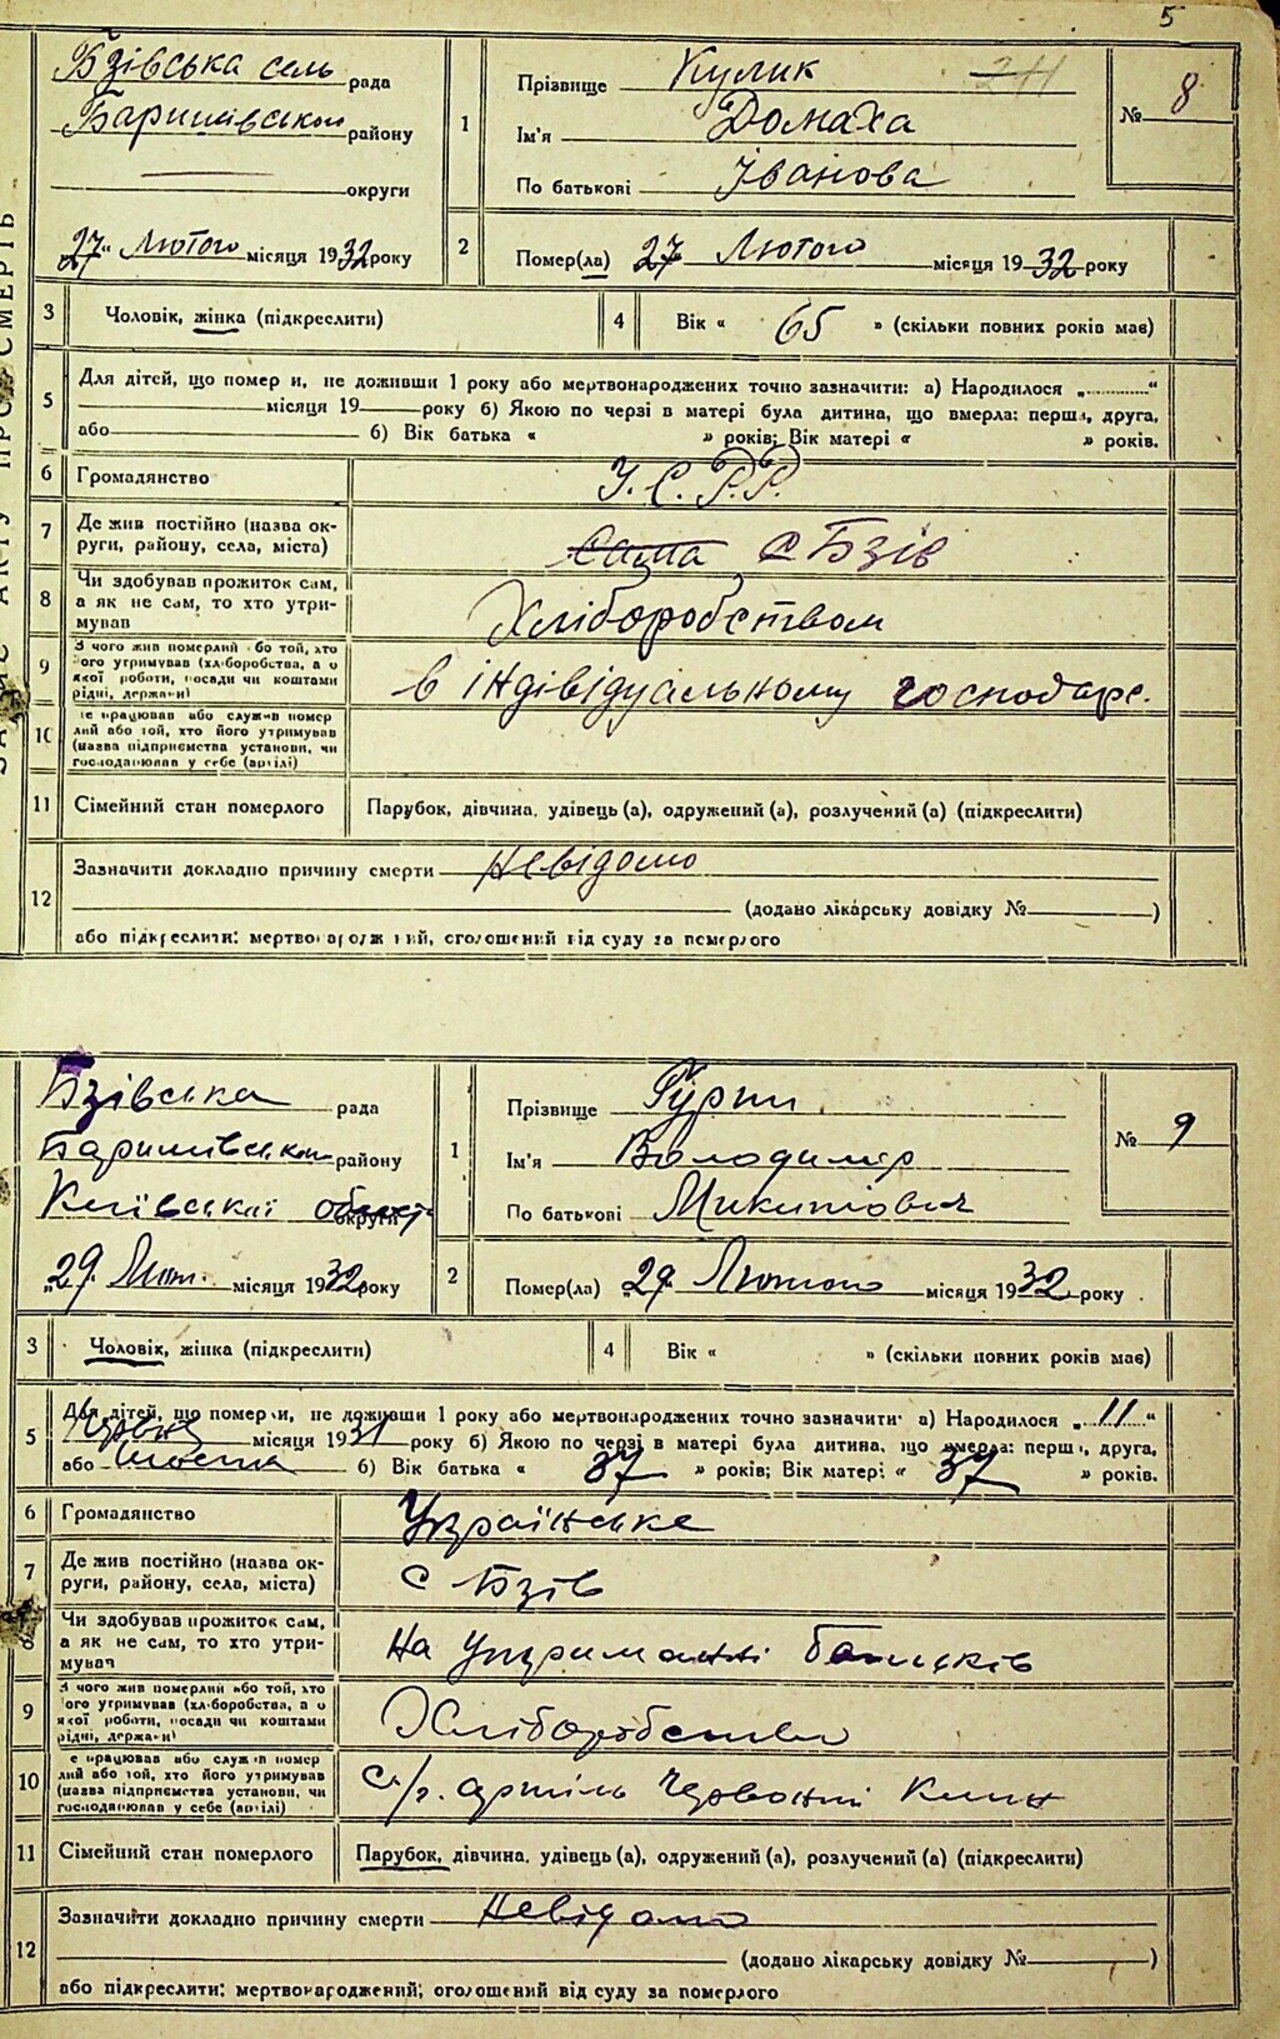 5
Бзівська сель рада
Баришівського району
округи
„27“ Лютого місяця 1932 року
1
Прізвище Кулик
Ім'я Домаха
По батькові Іванова
№ 8
2
Помер(ла) 27 Лютого місяця 1932 року
3
Чоловік, жінка (підкреслити)
4
Вік « 65 » (скільки повних років має)
5
Для дітей, що помер и, не доживши 1 року або мертвонароджених точно зазначити: а) Народилося „..........“
місяця 19 року б) Якою по черзі в матері була дитина, що вмерла: перша, друга,
або б) Вік батька « » років; Вік матері « » років.
6
Громадянство
У.С.Р.Р.
7
Де жив постійно (назва ок-
руги, району, села, міста)
Сама с Бзів
8
Чи здобував прожиток сам,
а як не сам, то хто утри-
мував
Хліборобством
9
З чого жив померлий або той, хто
його утримував (хліборобства, а о
якої роботи, посади чи коштами
рідні, держави)
в індівідуальному господарс.
10
е працював або служив помер
лий або той, хто його утримував
(назва підприємства установи, чи
господарював у себе (артілі)
11
Сімейний стан померлого
Парубок, дівчина, удівець (а), одружений (а), розлучений (а) (підкреслити)
12
Зазначити докладно причину смерти Невідомо
(додано лікарську довідку № )
або підкреслити: мертвонароджений, оголошений від суду за померлого
Бзівська рада
Баришівського району
Київської област округи
„29. Лют. місяця 1932 року
1
Прізвище Гурин
Ім'я Володимір
По батькові Микитович
№ 9
2
Помер(ла) „29“ Лютого місяця 1932 року
3
Чоловік, жінка (підкреслити)
4
Вік « » (скільки повних років має)
5
Для дітей, що померли, не доживши 1 року або мертвонароджених точно зазначити: а) Народилося „11“
Червня місяця 1931 року б) Якою по черзі в матері була дитина, що вмерла: перша, друга,
або шоста б) Вік батька « 37 » років; Вік матері « 37 » років.
6
Громадянство
Українське
7
Де жив постійно (назва ок-
руги, району, села, міста)
с Бзів
8
Чи здобував прожиток сам,
а як не сам, то хто утри-
мував
На утриманні батьків
9
З чого жив померлий або той, хто
його утримував (хліборобства, а о
якої роботи, посади чи коштами
рідні, держави)
Хліборобство
10
е працював або служив помер
лий або той, хто його утримував
(назва підприємства установи, чи
господарював у себе (артілі)
с/г. артіль Червоний
11
Сімейний стан померлого
Парубок, дівчина, удівець (а), одружений (а), розлучений (а) (підкреслити)
12
Зазначити докладно причину смерти Невідомо
(додано лікарську довідку № )
або підкреслити: мертвонароджений; оголошений від суду за померлого